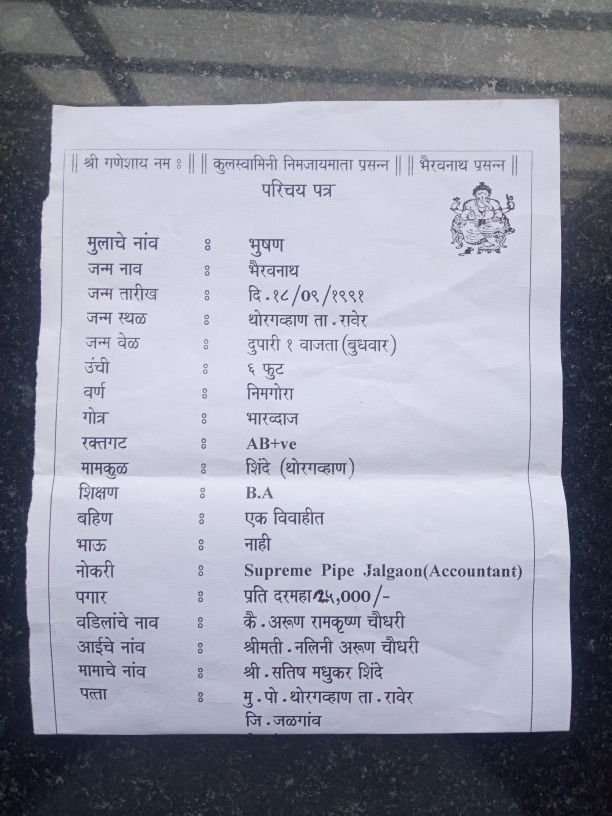 || श्री गणेशाय नम : || || कुलस्वामिनी निमजायमाता प्रसन्न || || भैरवनाथ प्रसन्न ||
परिचय पत्र
मुलाचे नांव : भुषण
जन्म नाव : भैरवनाथ
जन्म तारीख : दि .१८/०९/१९९१
जन्म स्थळ : थोरगव्हाण ता . रावेर
जन्म वेळ : दुपारी १ वाजता (बुधवार)
उंची : ६ फुट
वर्ण : निमगोरा
गोत्र : भारव्दाज
रक्तगट : AB+ve
मामकुळ : शिंदे (थोरगव्हाण)
शिक्षण : B.A
बहिण : एक विवाहीत
भाऊ : नाही
नोकरी : Supreme Pipe Jalgaon(Accountant)
पगार : प्रति दरमहा २५,000/-
वडिलांचे नाव : कै . अरूण रामकृष्ण चौधरी
आईचे नांव : श्रीमती . नलिनी अरूण चौधरी
मामाचे नांव : श्री . सतिष मधुकर शिंदे
पत्ता : मु . पो . थोरगव्हाण ता . रावेर
जि . जळगांव